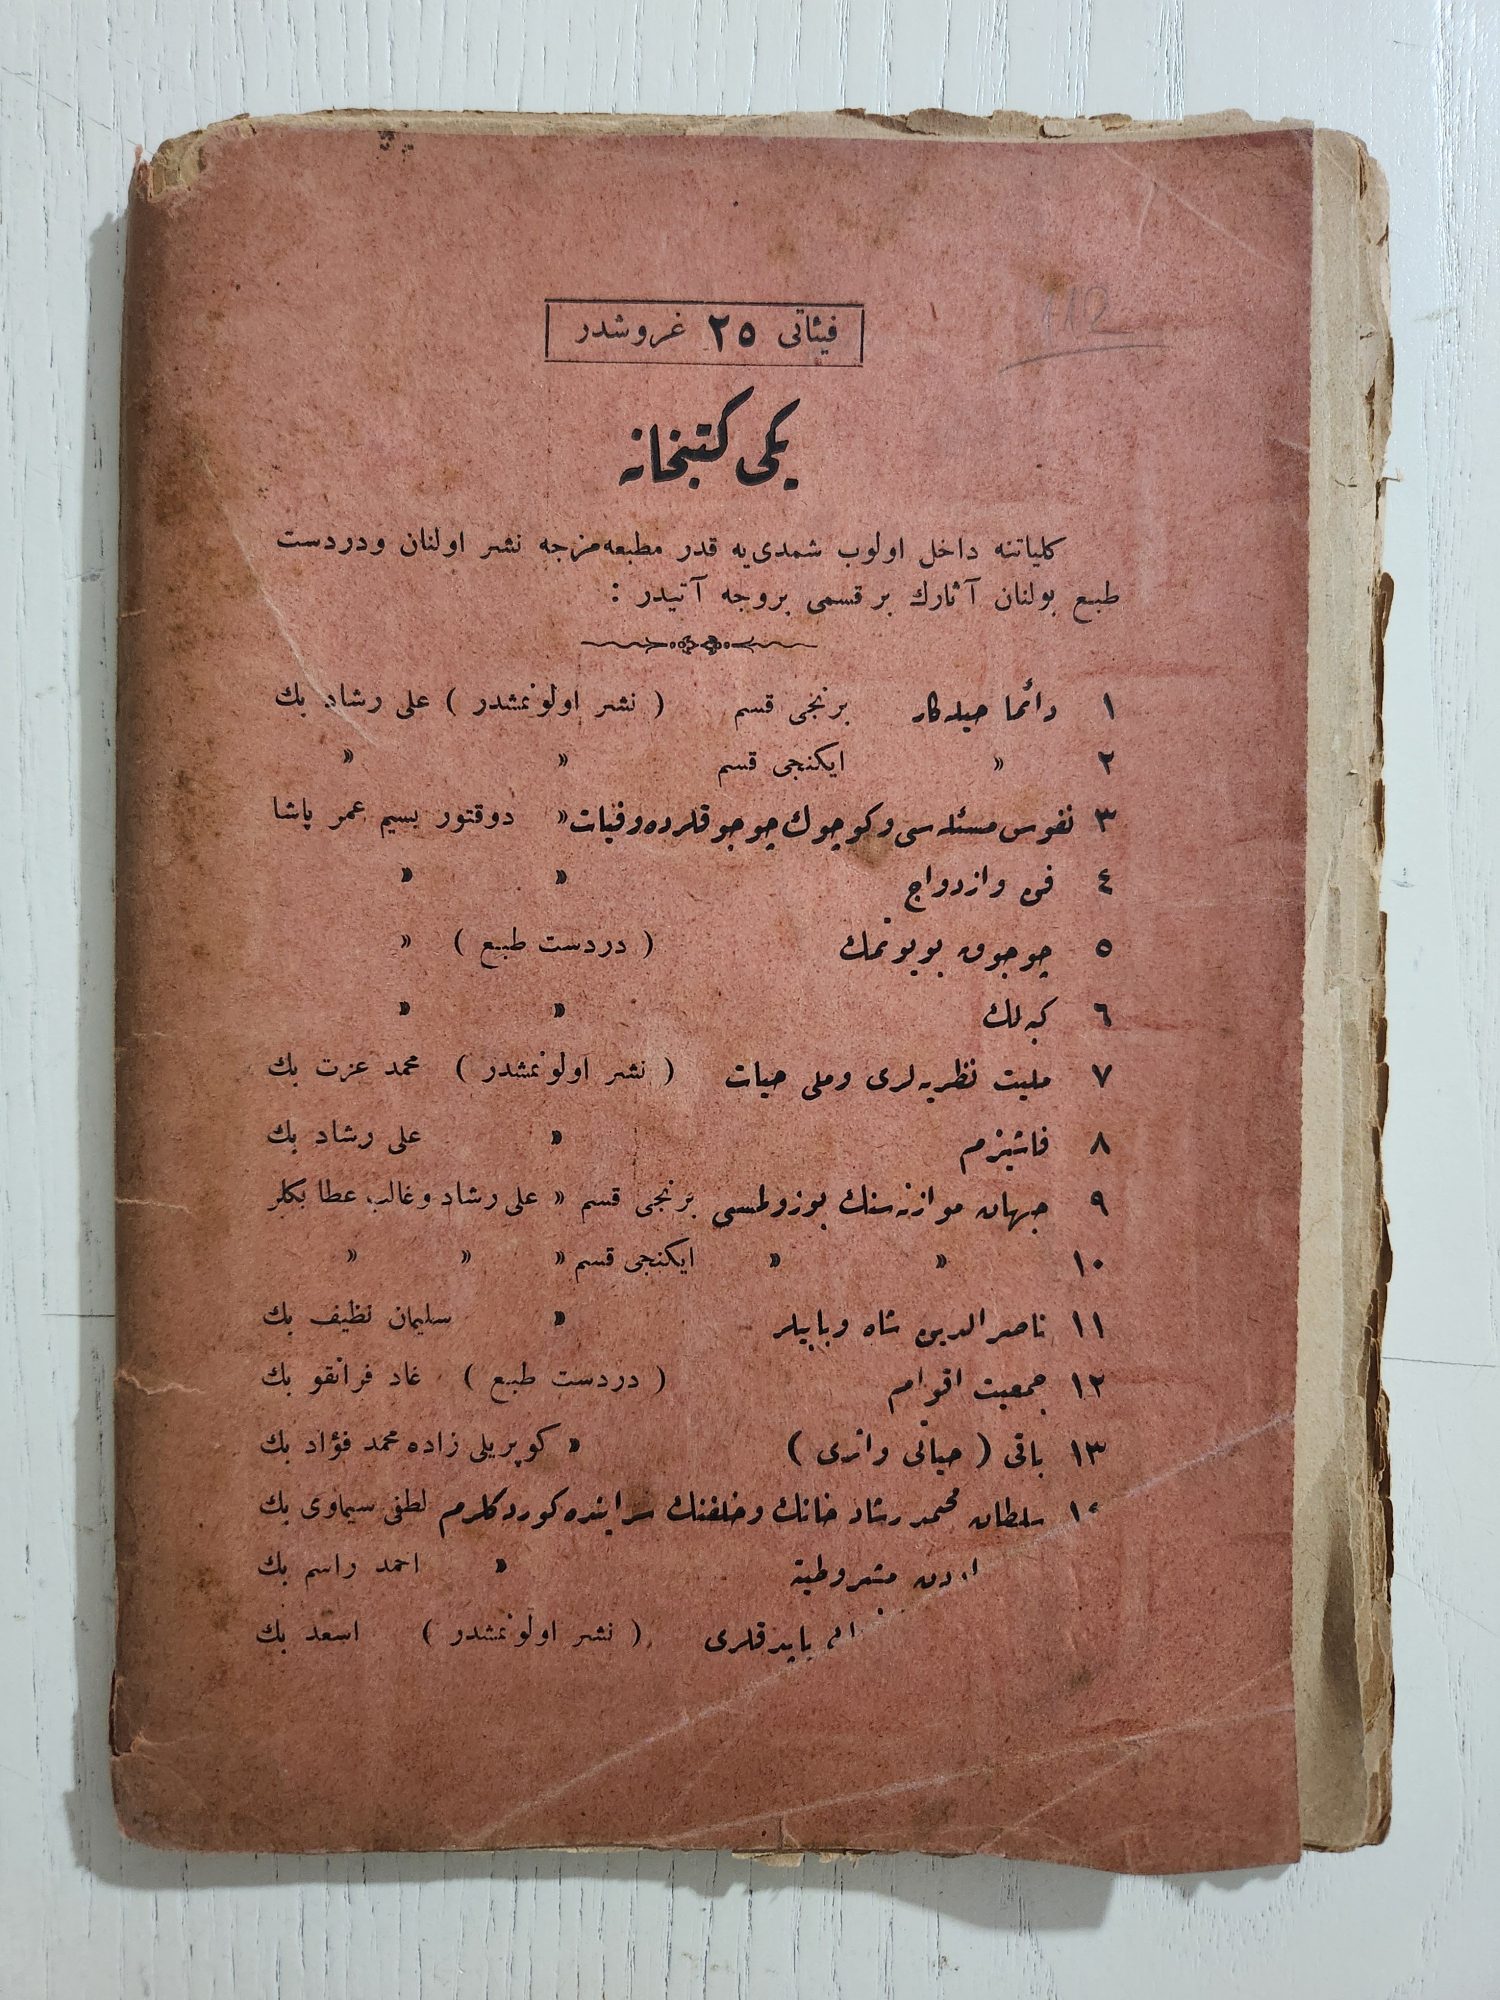 112
فيئاتی ٢٥ غروشدر
یکی کتبخانه
کلیاتنه داخل اولوب شمدی‌یه قدر مطبعه‌مزجه نشر اولنان ودردست
طبع بولنان آثارك بر قسمی بروجه آتیدر :
١ دائما حیله‌کار برنجی قسم ( نشر اولونمشدر ) علی رشاد بك
٢ » ایکنجی قسم » »
٣ نفوس مسئله‌سی وکوچوك چوجوقلرده وفیات » دوقتور بسیم عمر پاشا
٤ فن وازدواج » »
٥ چوجوق بویوتمك ( دردست طبع ) »
٦ کبه‌لك » »
٧ ملیت نظریه‌لری وملی حیات ( نشر اولونمشدر ) محمد عزت بك
٨ فاشیزم » علی رشاد بك
٩ جهان موازنه‌سنك بوزولمسی برنجی قسم » علی رشاد وغالب عطا بکلر
١٠ » » ایکنجی قسم » » »
١١ ناصرالدین شاه وبابیلر » سلیمان نظیف بك
١٢ جمعیت اقوام ( دردست طبع ) غاد فرانقو بك
١٣ باقی ( حیاتی واثری ) » کوپریلی زاده محمد فؤاد بك
سلطان محمد رشاد خانك وخلفنك سراینده کوردکلرم لطفی سیماوی بك
مشروطیته » احمد راسم بك
بایدقلری ( نشر اولونمشدر ) اسعد بك